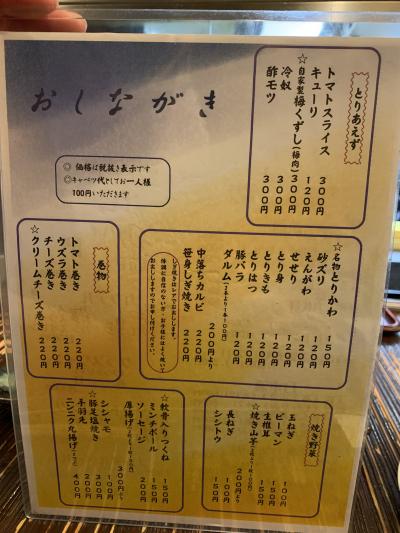 おしながき
◎価格は税抜き表示です
◎キャベツ代としてお一人様
100円いただきます
とりあえず
トマトスライス 300円
キューリ 120円
☆自家製 梅くずし(梅肉) 300円
冷奴 300円
酢モツ 300円
☆名物 とりかわ 150円
砂ズリ 120円
えんがわ 120円
せせり 120円
とり身 120円
とりきも 120円
とりはつ 120円
豚バラ 120円
ダルム
中落ちカルビ 200円より
笹身しぎ焼き 220円
しぎ焼きはレアでお出しします。
体調に自信のない方、お子様にはよく焼いて
お出ししますのでお申し付けください。
巻物
トマト巻き 220円
ウズラ巻き 220円
チーズ巻き 220円
☆クリームチーズ巻き 220円
焼き野菜
玉ねぎ 100円
ピーマン 100円
生椎茸
☆焼き山芋
長ねぎ 150円
シシトウ 150円
☆軟骨入りつくね 150円
ミンチボール 150円
ソーセージ 200円
厚揚げ 300円より
シシャモ 100円
☆豚足塩焼き 300円
手羽先 200円
ニンニク丸揚げ 400円